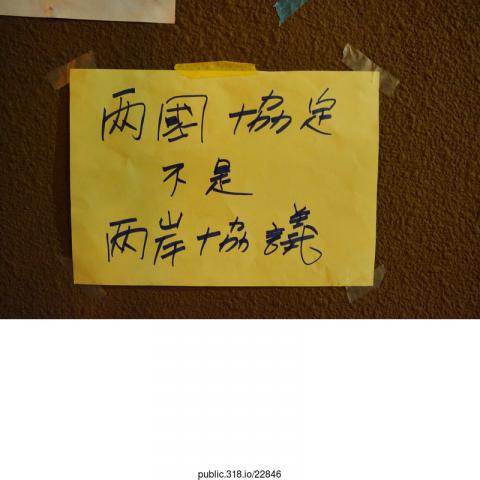 两國協定
不是
两岸協議
public.318.io/22846